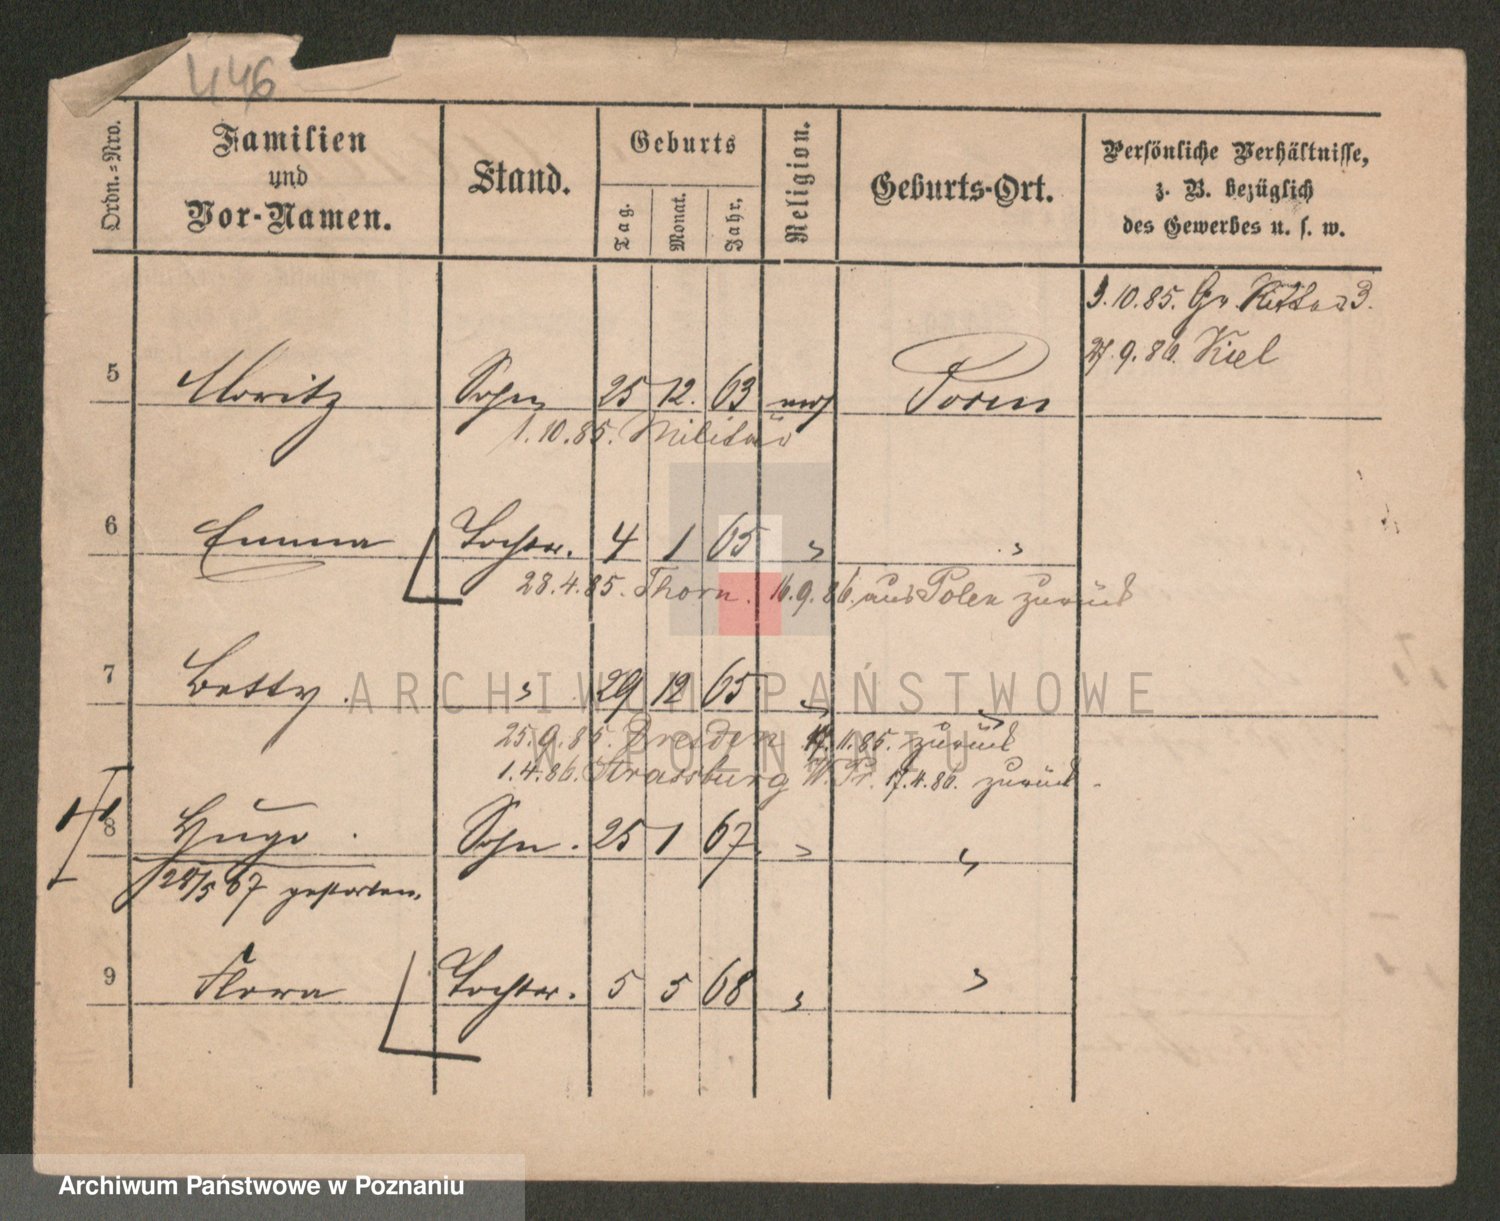 446
Ordn.-Nro.
Familien
und
Vor-Namen.
Stand.
Geburts
Tag.
Monat.
Jahr.
Religion.
Geburts-Ort.
Persönliche Verhältnisse,
z. B. bezüglich
des Gewerbes u. s. w.
3.10.85. Gr. Ritter 3.
27.9.86. Kiel
5 Moritz Sohn 25 12. 63 mos Posen
1.10.85. Militär
6 Emma Tochter. 4 1 65 " "
28.4.85. Thorn. 16.9.86. aus Polen zurück
7 Betty. " 29 12 65 " "
25.9.85. Dresden 17.11.85. zurück
1.4.86. Strassburg W. Pr. 17.4.86. zurück.
8 Hugo. Sohn. 25 1 67. " "
28/5 67 gestorben.
9 Flora Tochter. 5 5 68 " "
ARCHIWUM PAŃSTWOWE
W POZNANIU
Archiwum Państwowe w Poznaniu